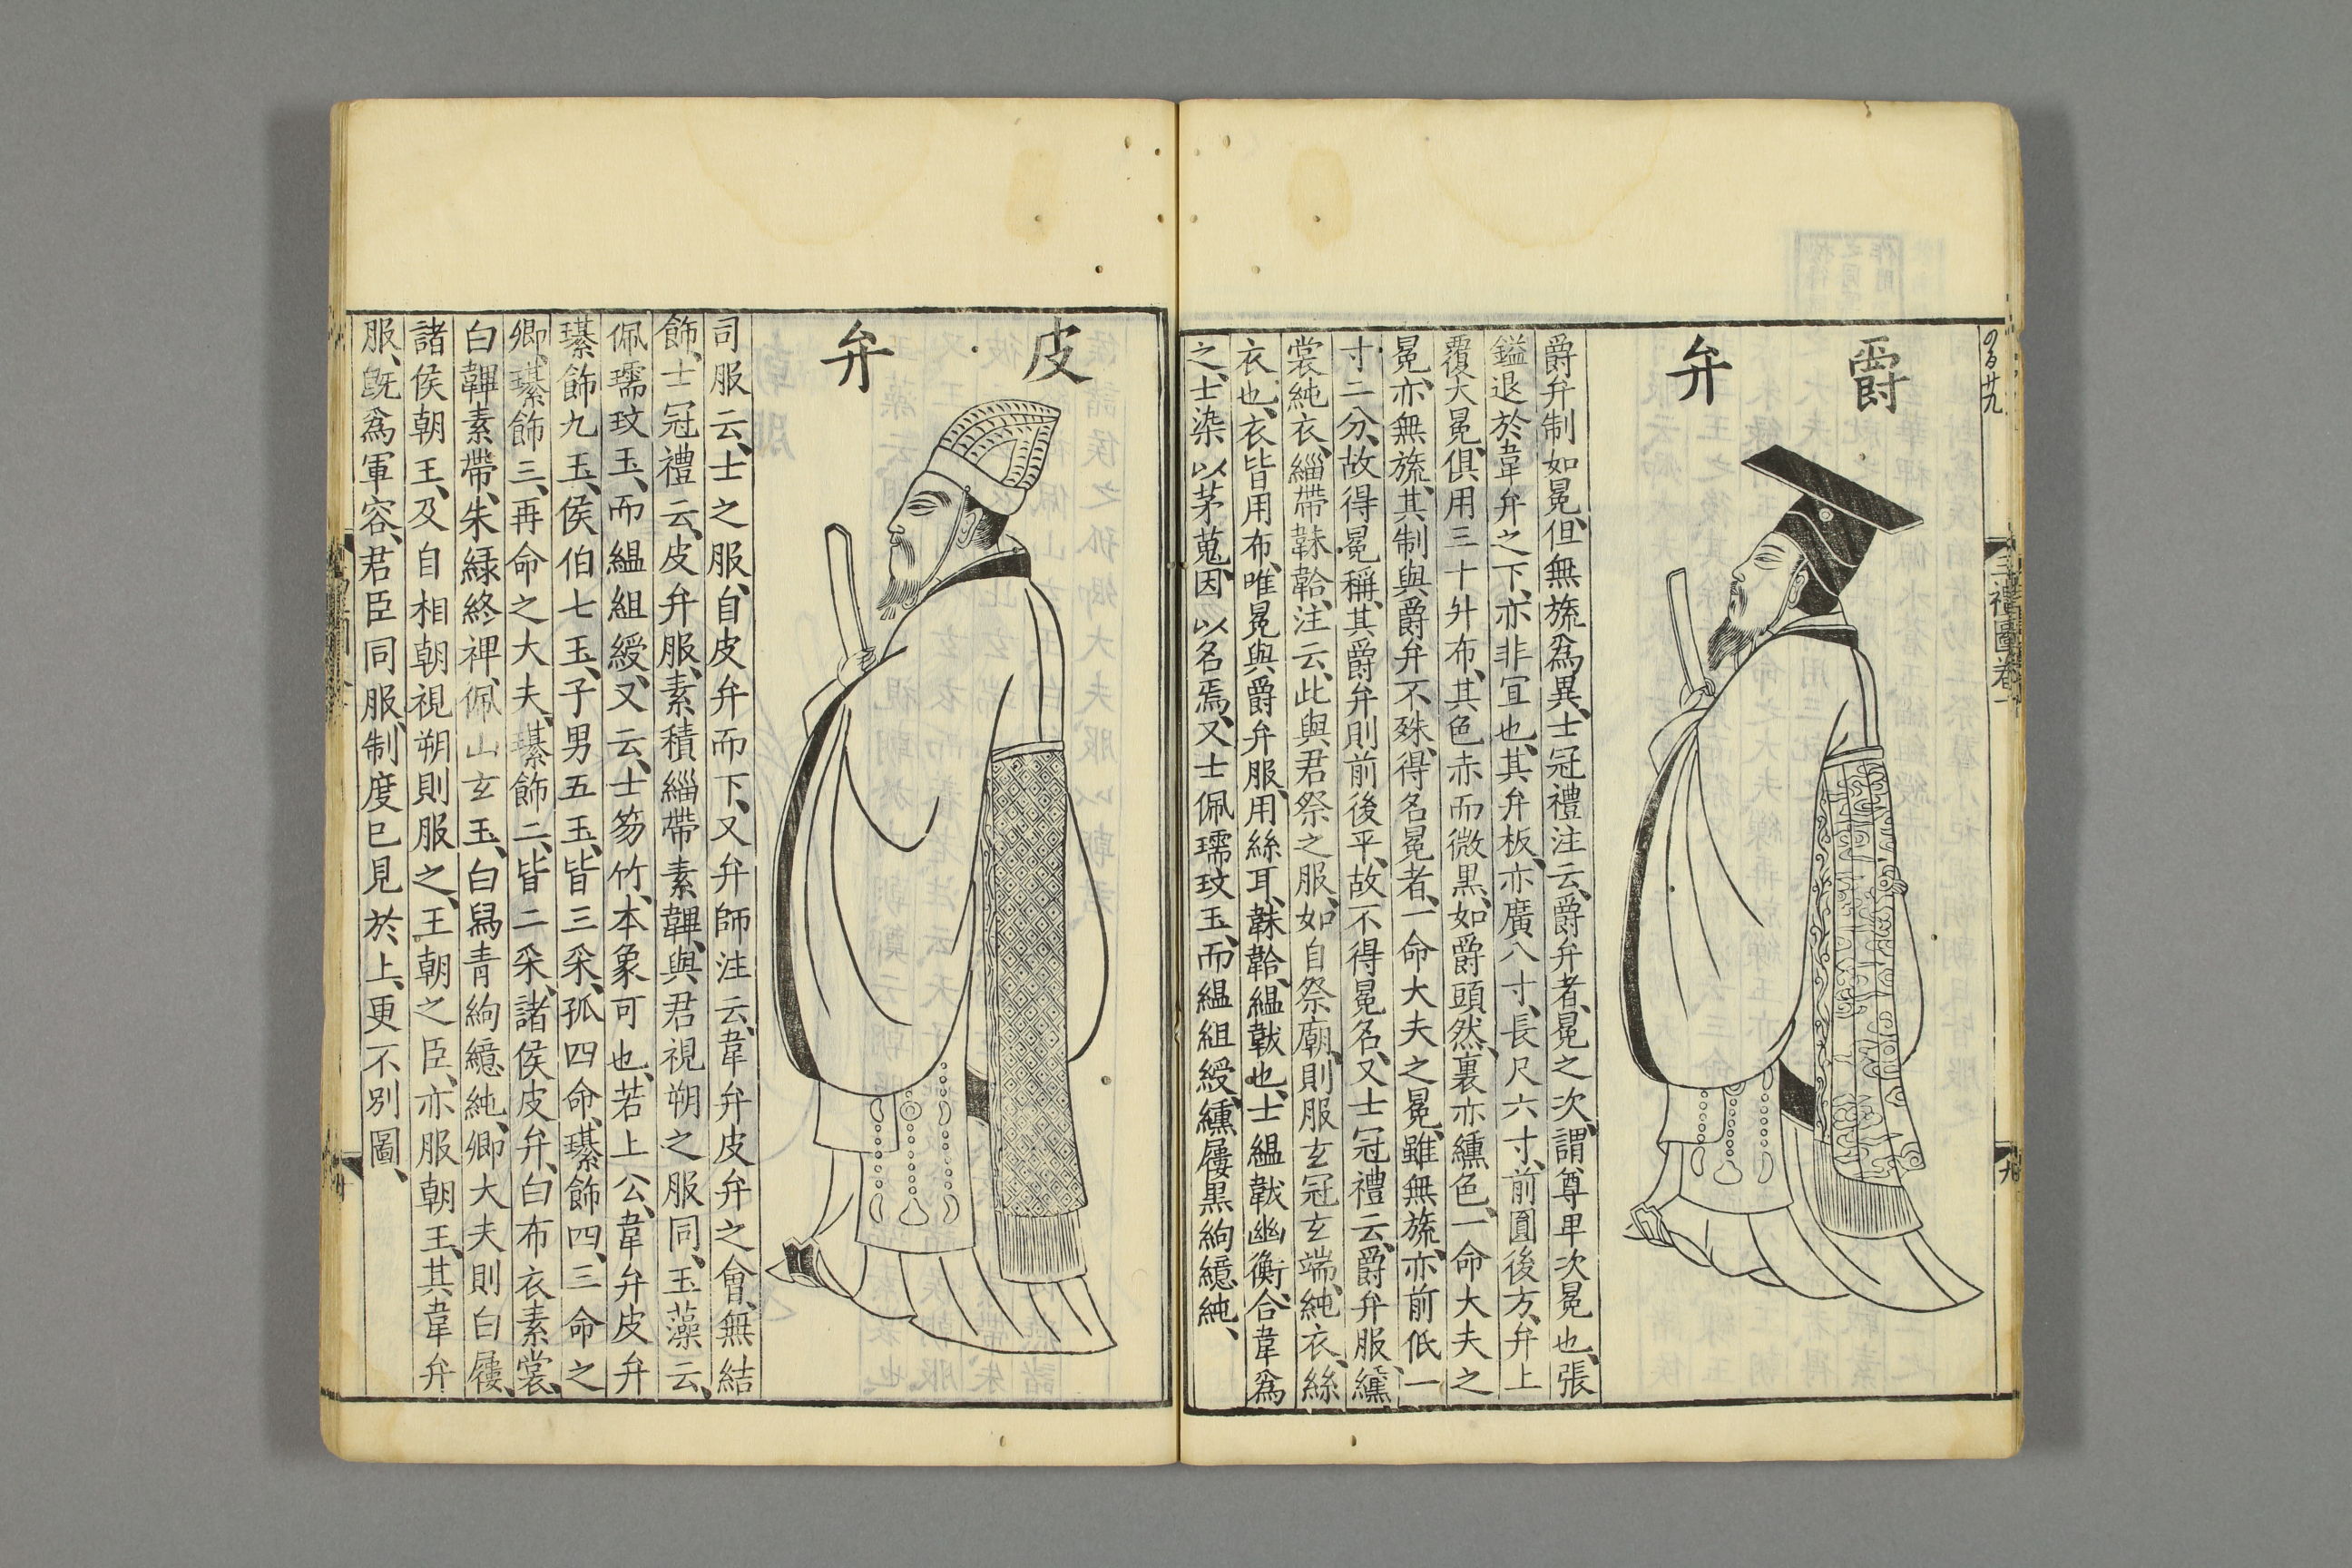 爵弁
爵弁制如冕、但無旒爲異、士冠禮注云、爵弁者、冕之次、謂尊卑次冕也、張
鎰退於韋弁之下、亦非宜也、其弁板、亦廣八寸、長尺六寸、前圓後方、弁上
覆大冕、俱用三十升布、其色赤而微黒、如爵頭然、裏亦纁色、一命大夫之
冕、亦無旒、其制與爵弁不殊、得名冕者、一命大夫之冕、雖無旒、亦前低一
寸二分、故得冕稱、其爵弁則前後平、故不得冕名、又士冠禮云、爵弁服、纁
裳純衣、緇帶韎韐、注云、此與君祭之服、如自祭廟、則服玄冠玄端、純衣、絲
衣也、衣皆用布、唯冕與爵弁服、用絲耳、韎韐、縕韍也、士縕韍幽衡、合韋爲
之、士染以茅蒐、因以名焉、又士佩瓀玟玉、而縕組綬、纁屨黒絇繶純、
三禮圖卷一
九
皮弁
司服云、士之服、自皮弁而下、又弁師注云、韋弁皮弁之會、無結
飾、士冠禮云、皮弁服、素積緇帶素韠、與君視朔之服同、玉藻云、
佩瓀玟玉、而縕組綬、又云、士笏竹、本象可也、若上公、韋弁皮弁
璂飾九玉、侯伯七玉、子男五玉、皆三采、孤四命、璂飾四、三命之
卿、璂飾三、再命之大夫、璂飾二、皆二采、諸侯皮弁、白布衣素裳、
白韠素帶、朱緑終裨、佩山玄玉、白舄青絇繶純、卿大夫則白屨、
諸侯朝王、及自相朝視朔則服之、王朝之臣、亦服朝王、其韋弁
服、旣爲軍容、君臣同服、制度已見於上、更不別圖、